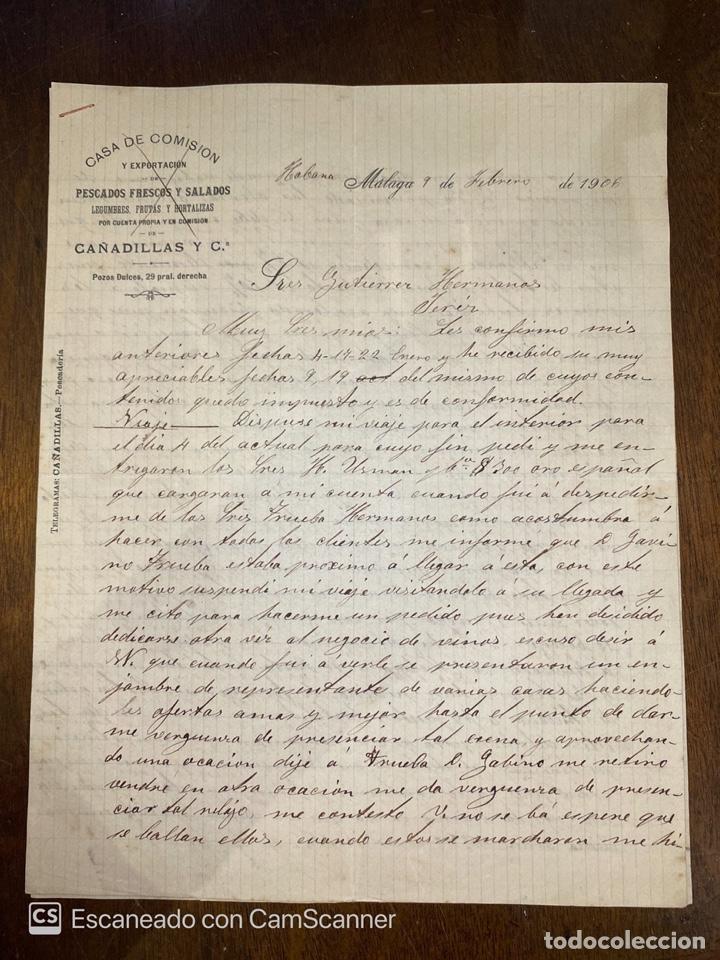 CASA DE COMISION
Y EXPORTACIÓN
DE
PESCADOS FRESCOS Y SALADOS
LEGUMBRES, FRUTAS Y HORTALIZAS
POR CUENTA PROPIA Y EN COMISIÓN
DE
CAÑADILLAS Y C.ª
Pozos Dulces, 29 pral. derecha
TELEGRAMAS: CAÑADILLAS.—Pescadería
Habana Málaga 9 de Febrero de 1906
Sres Gutierrez Hermanos
Jeréz
Muy Sres mios: Les confirmo mis
anteriores fechas 4-17-22 Enero y he recibido su muy
apreciables fechas 9, 19 del mismo de cuyos con-
tenidos quedo impuesto y es de conformidad.
Viaje — Dispuse mi viaje para el interior para
el dia 4 del actual para cuyo fin pedi y me en-
tregaron los Sres H. Usman y $300 oro español
que cargaran a mi cuenta cuando fui á despedir-
me de los Sres Trueba Hermanos como acostumbro á
hacer con todos los clientes me informe que D. Gavi-
no Trueba estaba proximo á llegar á esta, con este
motivo suspendi mi viaje visitandolo á su llegada y
me cito para hacerme un pedido pues han desidido
dedicarse otra vez al negocio de vinos, escuso desir á
W. que cuando fui á verle se presentaron un en-
jambre de representante de varias casas haciendo-
les ofertas a mas y mejor hasta el punto de dar-
me verguenza de presenciar tal cena, y aprovechan-
do una ocacion dije á Trueba D. Gabino me retiro
vendre en otra ocación me da verguenza de presen-
ciar tal relajo, me contesto V. no se bá espere que
se ballan ellos, cuando estos se marcharon me hi-
CS Escaneado con CamScanner
todocoleccion